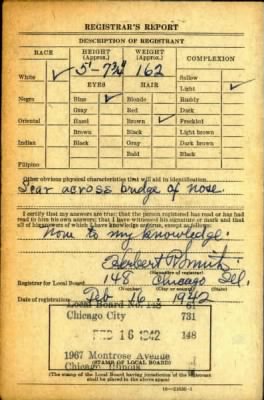 REGISTRAR'S REPORT
DESCRIPTION OF REGISTRANT
RACE
HEIGHT (Approx.)
WEIGHT (Approx.)
COMPLEXION
White ✓
5'-7¾"
162
Sallow
EYES
HAIR
Light ✓
Negro
Blue ✓
Blonde
Ruddy
Gray
Red
Dark
Oriental
Hazel
Brown ✓
Freckled
Brown
Black
Light brown
Indian
Black
Gray
Dark brown
Bald
Black
Filipino
Other obvious physical characteristics that will aid in identification
Scar across bridge of nose.
I certify that my answers are true; that the person registered has read or has had
read to him his own answers; that I have witnessed his signature or mark and that
all of his answers of which I have knowledge are true, except as follows:
None to my knowledge.
Herbert Smith
(Signature of registrar)
Registrar for Local Board 148 Chicago Ill.
(Number) (City or county) (State)
Date of registration Feb 16 1942
Local Board No. 148
Chicago City 731
FEB 16 1942 148
1967 Montrose Avenue
Chicago, Illinois
(STAMP OF LOCAL BOARD)
(The stamp of the Local Board having jurisdiction of the registrant
shall be placed in the above space.)